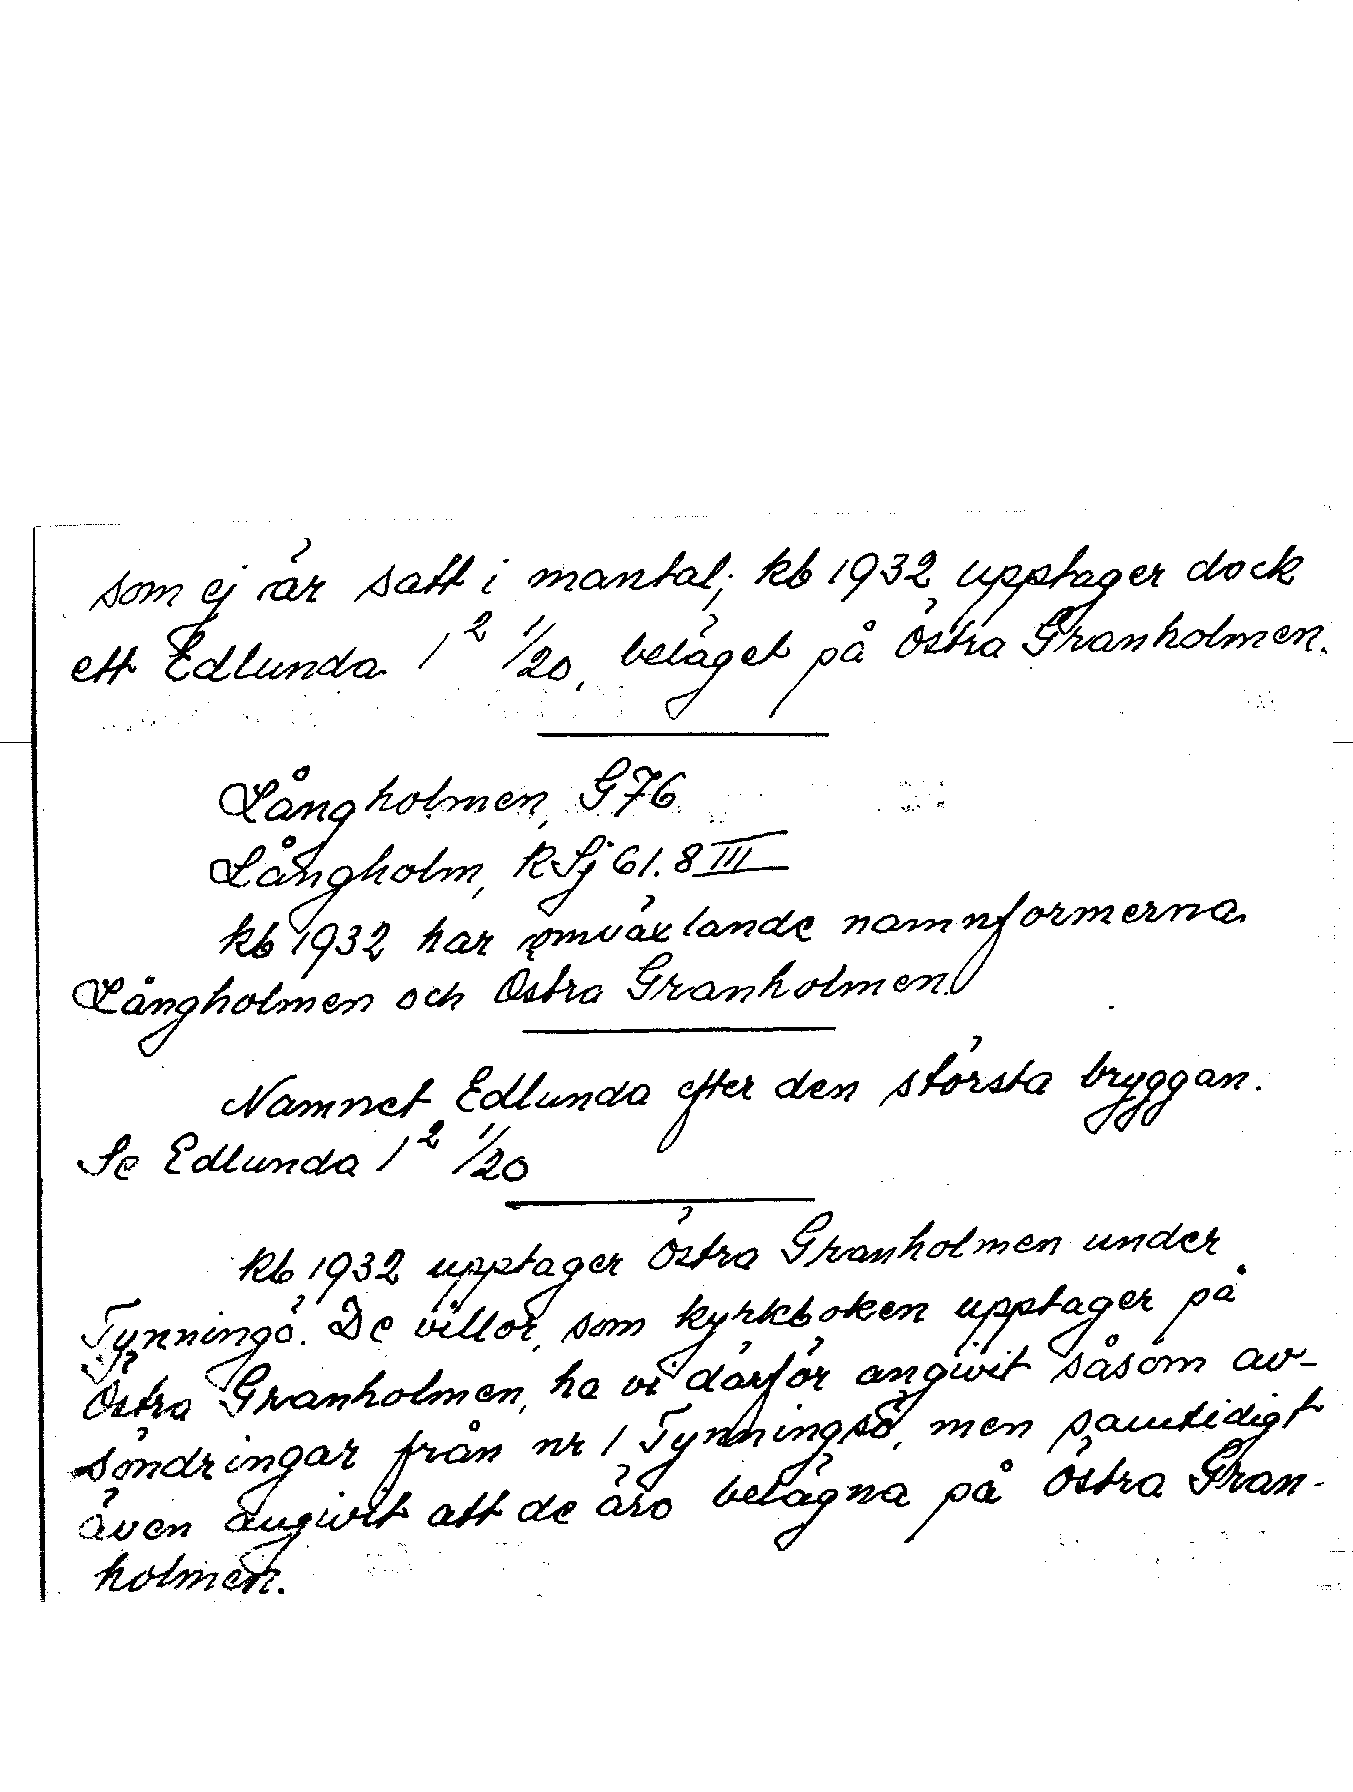 som ej är satt i mantal; kb 1932 upptager dock
ett Edlunda 1² 1/20, beläget på Östra Granholmen.
Långholmen, G76
Långholm, RSj 61. 8 III
kb 1932 har omväxlande namnformerna
Långholmen och Östra Granholmen.
Namnet Edlunda efter den största bryggan.
Se Edlunda 1² 1/20
kb 1932 upptager Östra Granholmen under
Tynningö. De villor, som kyrkboken upptager på
Östra Granholmen, ha vi därför angivit såsom av-
söndringar från nr 1 Tynningsö, men samtidigt
även angivit att de äro belägna på Östra Gran-
holmen.